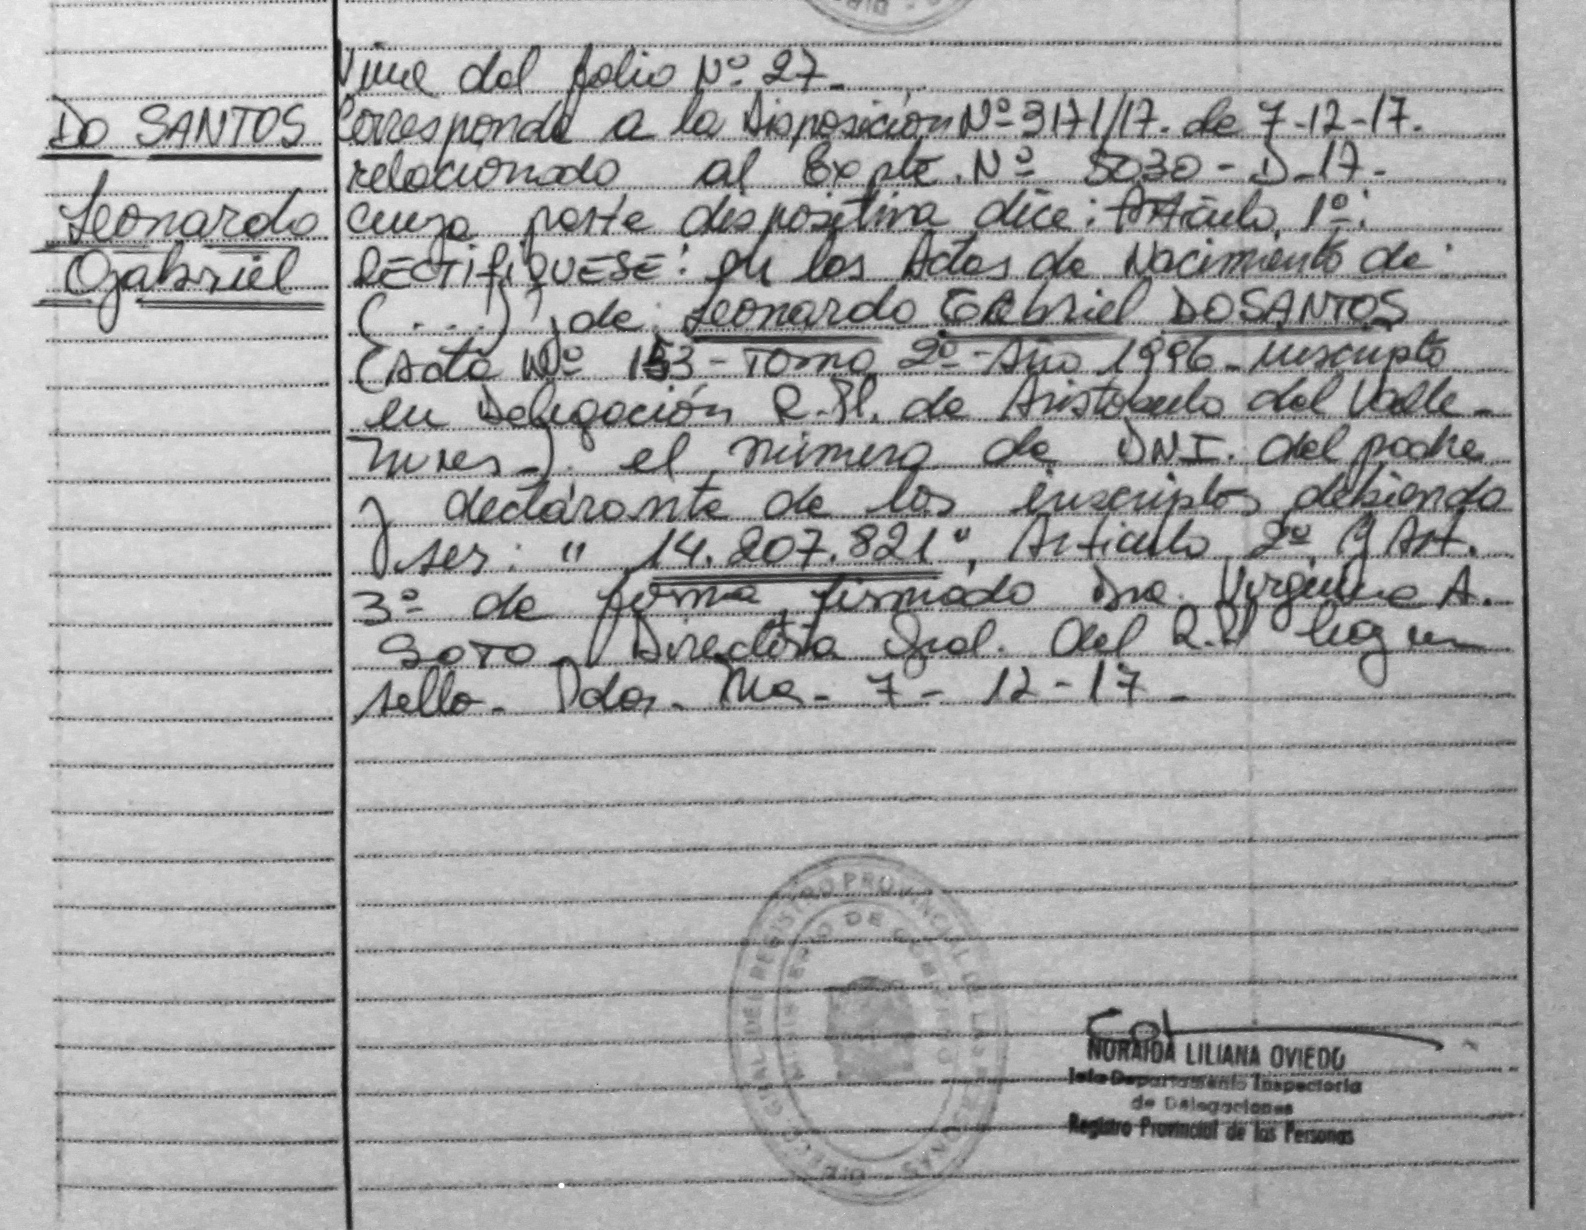 DO SANTOS
Leonardo
Gabriel
Viene del folio Nº 27.-
Corresponde a la Disposición Nº 3171/17. de 7-12-17.
relacionado al Expte. Nº 5030-D-17-
cuya parte dispositiva dice: Artículo 1º:
RECTIFIQUESE: en las Actas de Nacimiento de:
(....), de: Leonardo Gabriel DO SANTOS
(Acta Nº 153-Tomo 2º-Año 1996-inscripto
en Delegación R.P. de Aristobulo del Valle-
Mnes-). el número de DNI. del padre
y declarante de los inscriptos debiendo
ser: " 14.207.821". Artículo 2º y Art.
3º de forma, firmado Dra. Virginia A.
SOTO Directora Gral. del R.P. hay un
sello. Pdas. Mnes- 7-12-17-
DIRECCION GRAL. DEL REGISTRO PROVINCIAL DE LAS PERSONAS
MINISTERIO DE GOBIERNO
NORAIDA LILIANA OVIEDO
Jefe Departamento Inspectoria
de Delegaciones
Registro Provincial de las Personas